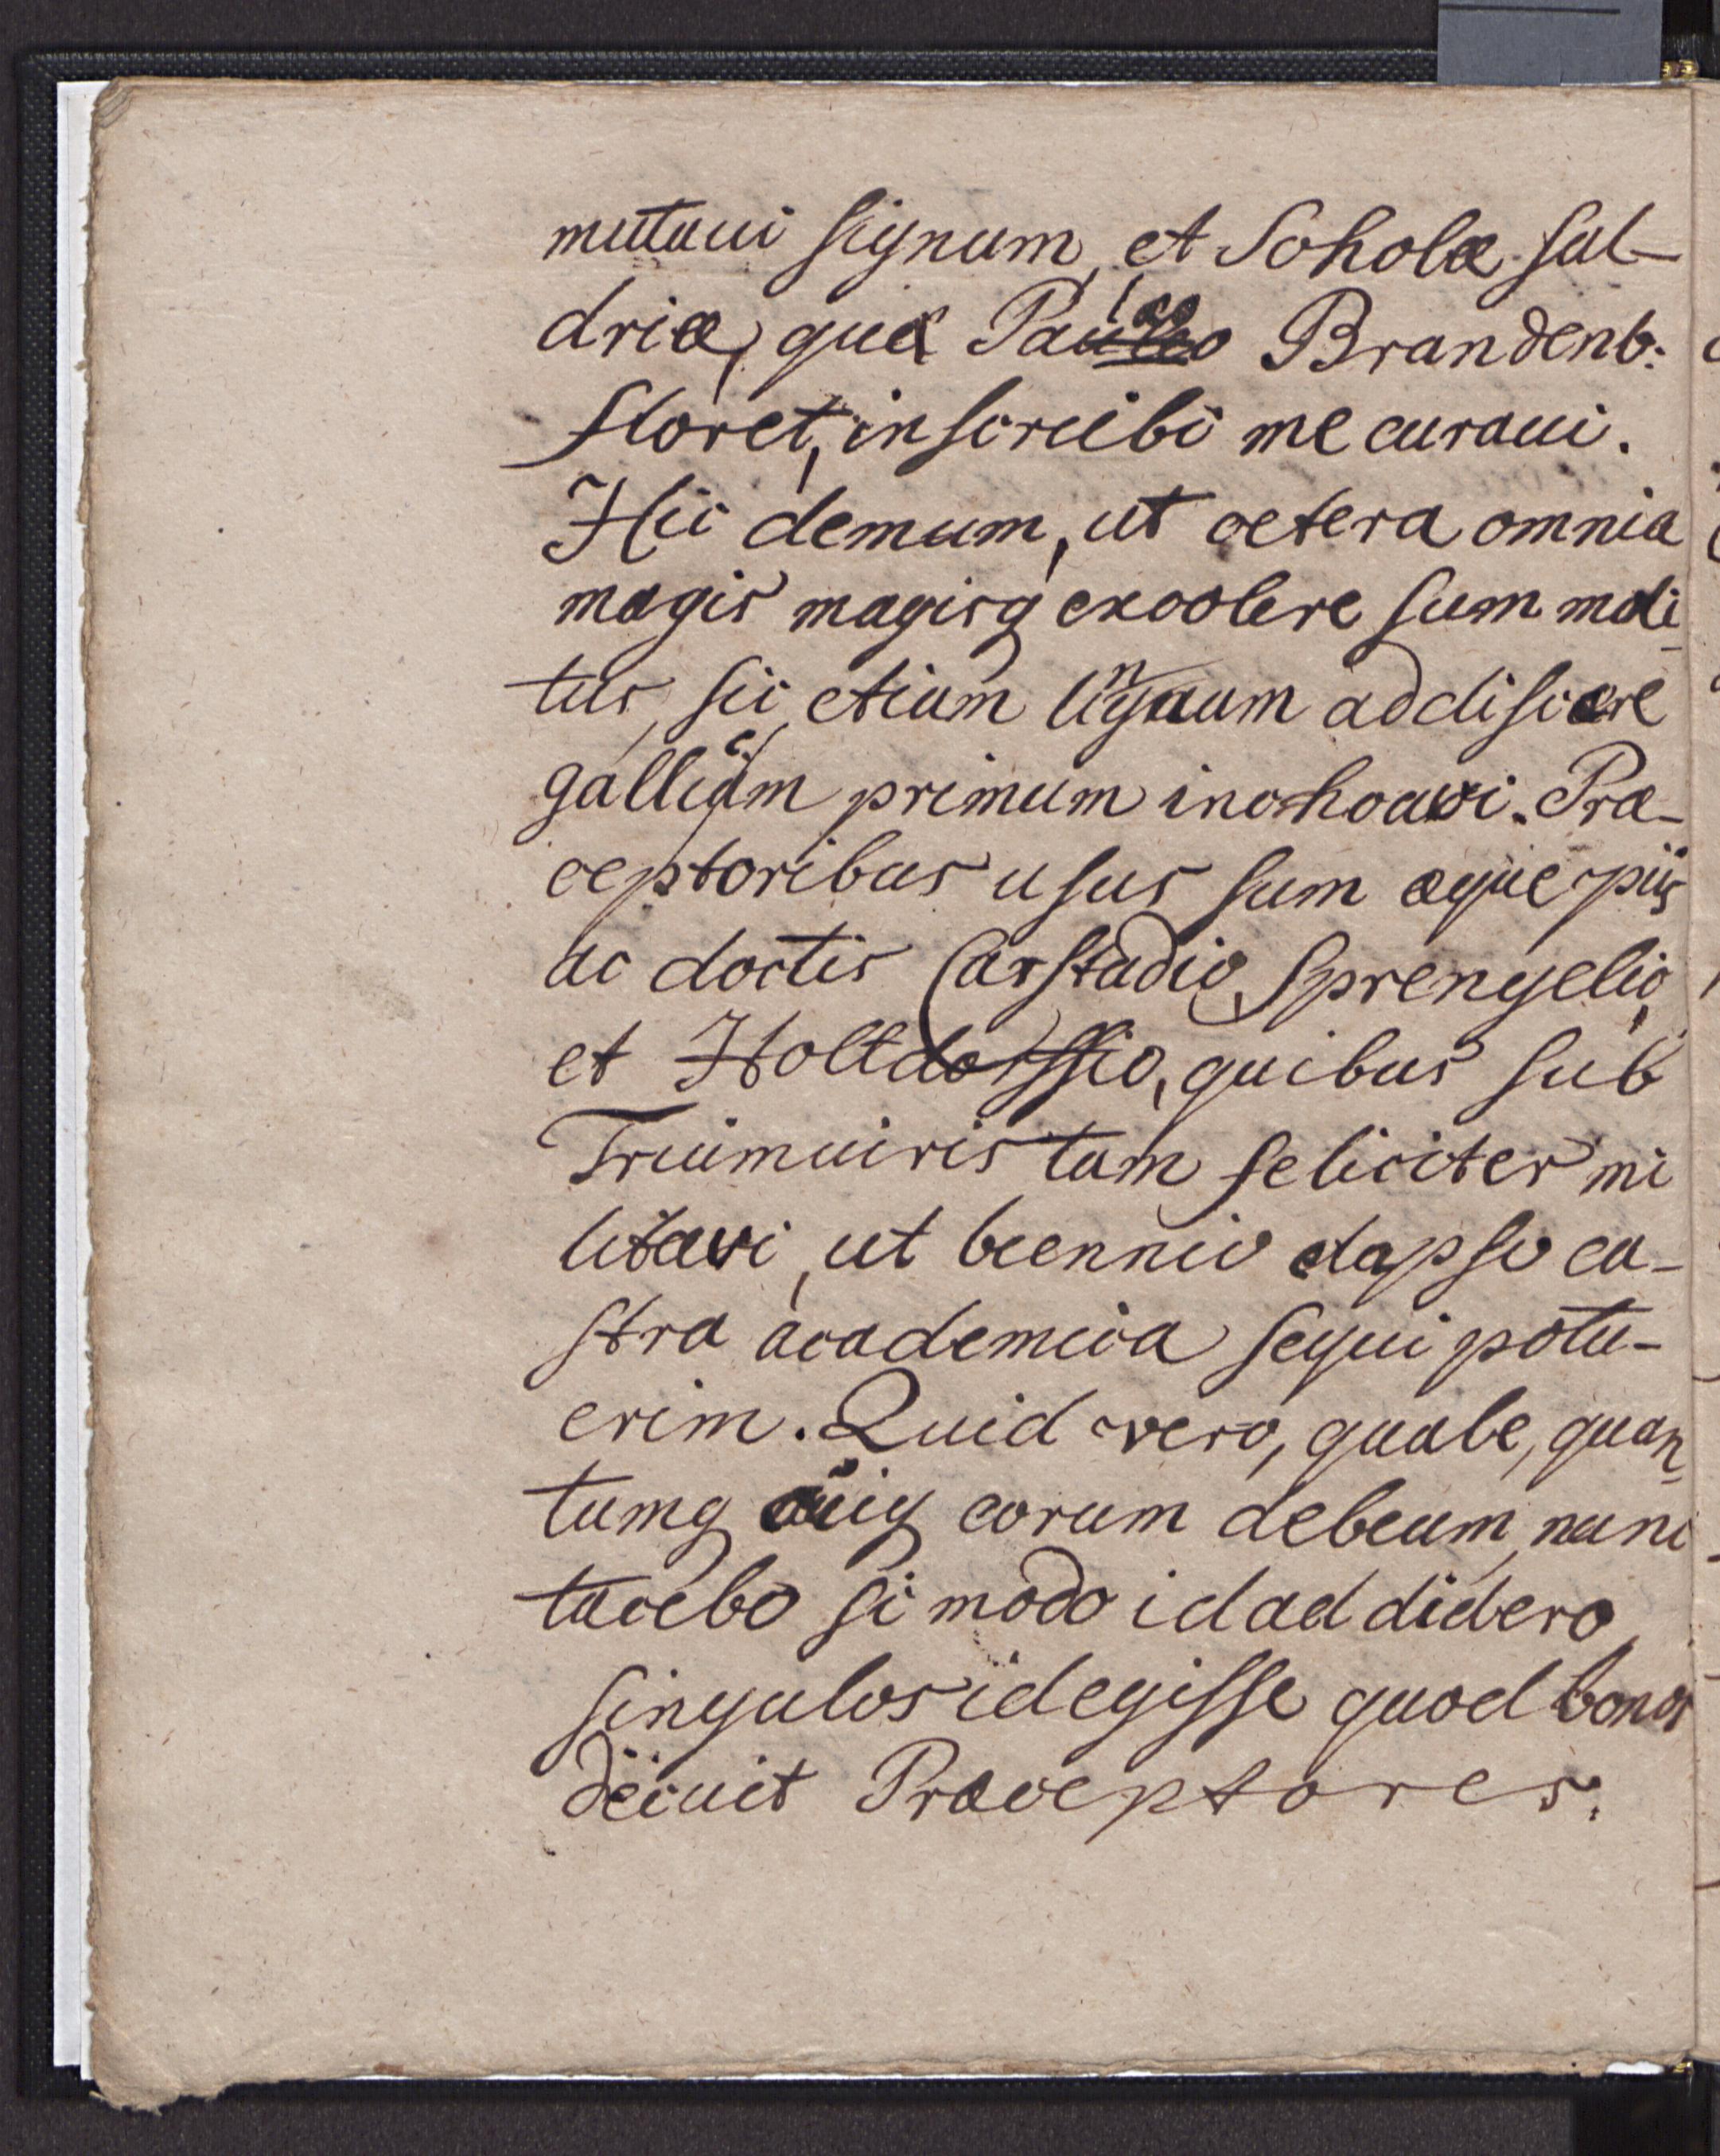 mutaui signum, et Scholæ sal-
driæ, quæ Paulæo Brandenb.
floret, inscribi me curaui.
Hic demum, ut cetera omnia
magis magisq excolere sum moli-
tus, sic etiam linguam addiscere
gallicam primum inchoavi. Præ-
ceptoribus usus sum æque piis
ac doctis Carstadio, Sprengelio,
et Holtdorffio, quibus sub
Triumuiris tam feliciter mi
litavi, ut biennio elapso ca-
stra academica sequi potu-
erim. Quid vero, quale, quan-
tumq cuiq eorum debeam, nunc
tacebo si modo id addidero,
singulos id egisse quod bonos
decuit Præceptores.